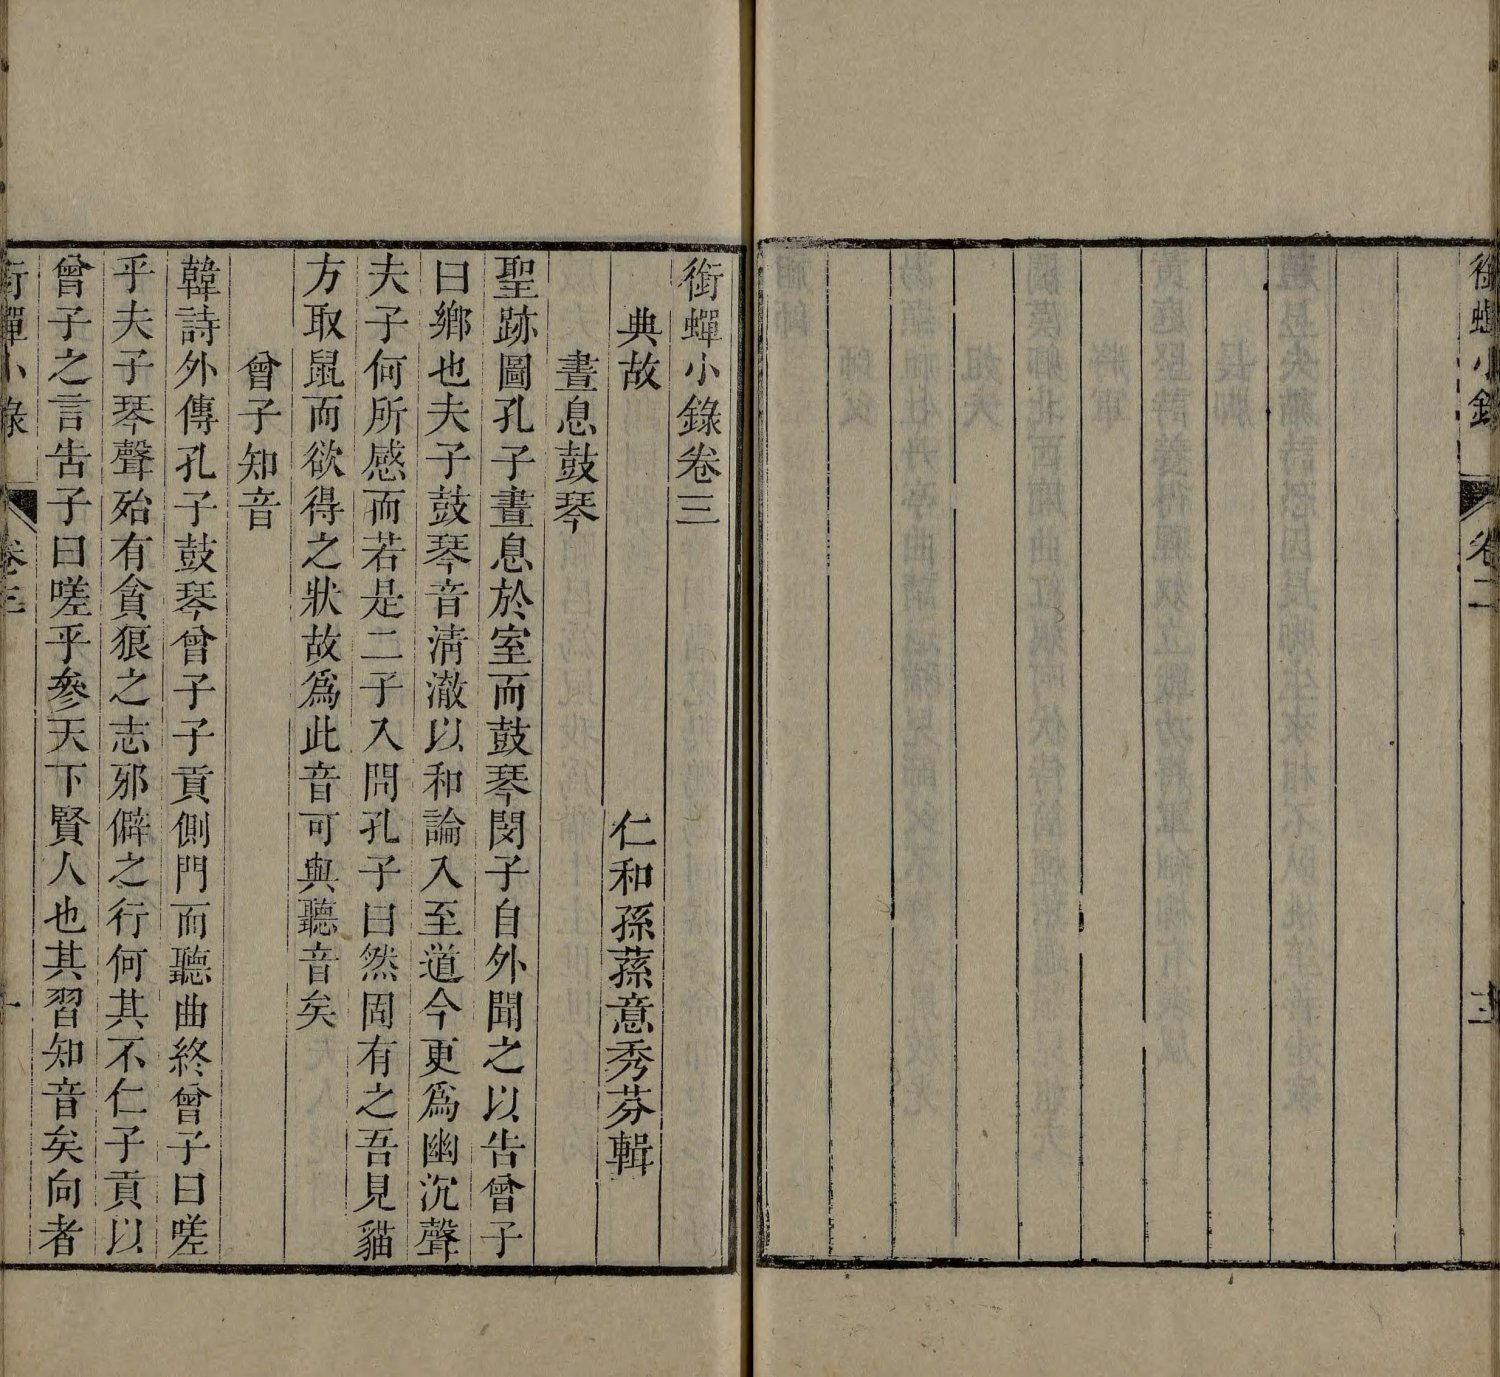 銜蟬小錄 卷二 十三
銜蟬小錄卷三
典故 仁和孫蓀意秀芬輯
晝息鼓琴
聖跡圖孔子晝息於室而鼓琴閔子自外聞之以告曾子
曰鄉也夫子鼓琴音淸澈以和論入至道今更爲幽沉聲
夫子何所感而若是二子入問孔子曰然固有之吾見貓
方取鼠而欲得之狀故爲此音可與聽音矣
曾子知音
韓詩外傳孔子鼓琴曾子子貢側門而聽曲終曾子曰嗟
乎夫子琴聲殆有貪狼之志邪僻之行何其不仁子貢以
曾子之言告子曰嗟乎參天下賢人也其習知音矣向者
銜蟬小錄 卷三 一